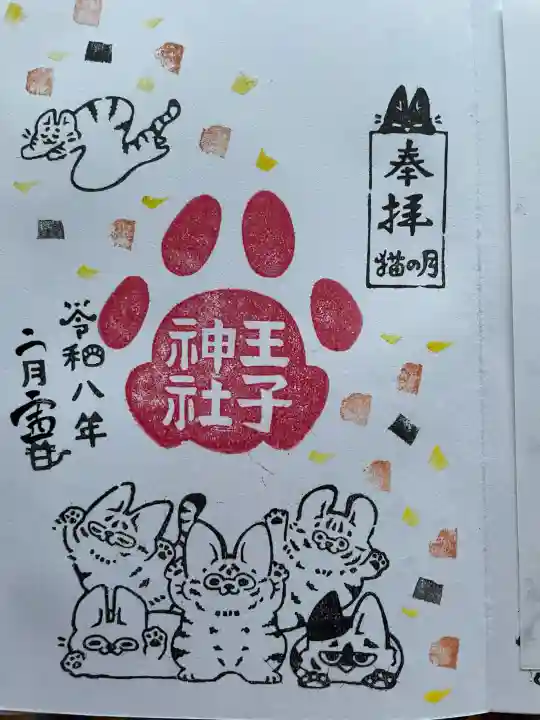 奉拝
猫の月
王子
神社
令和八年
二月